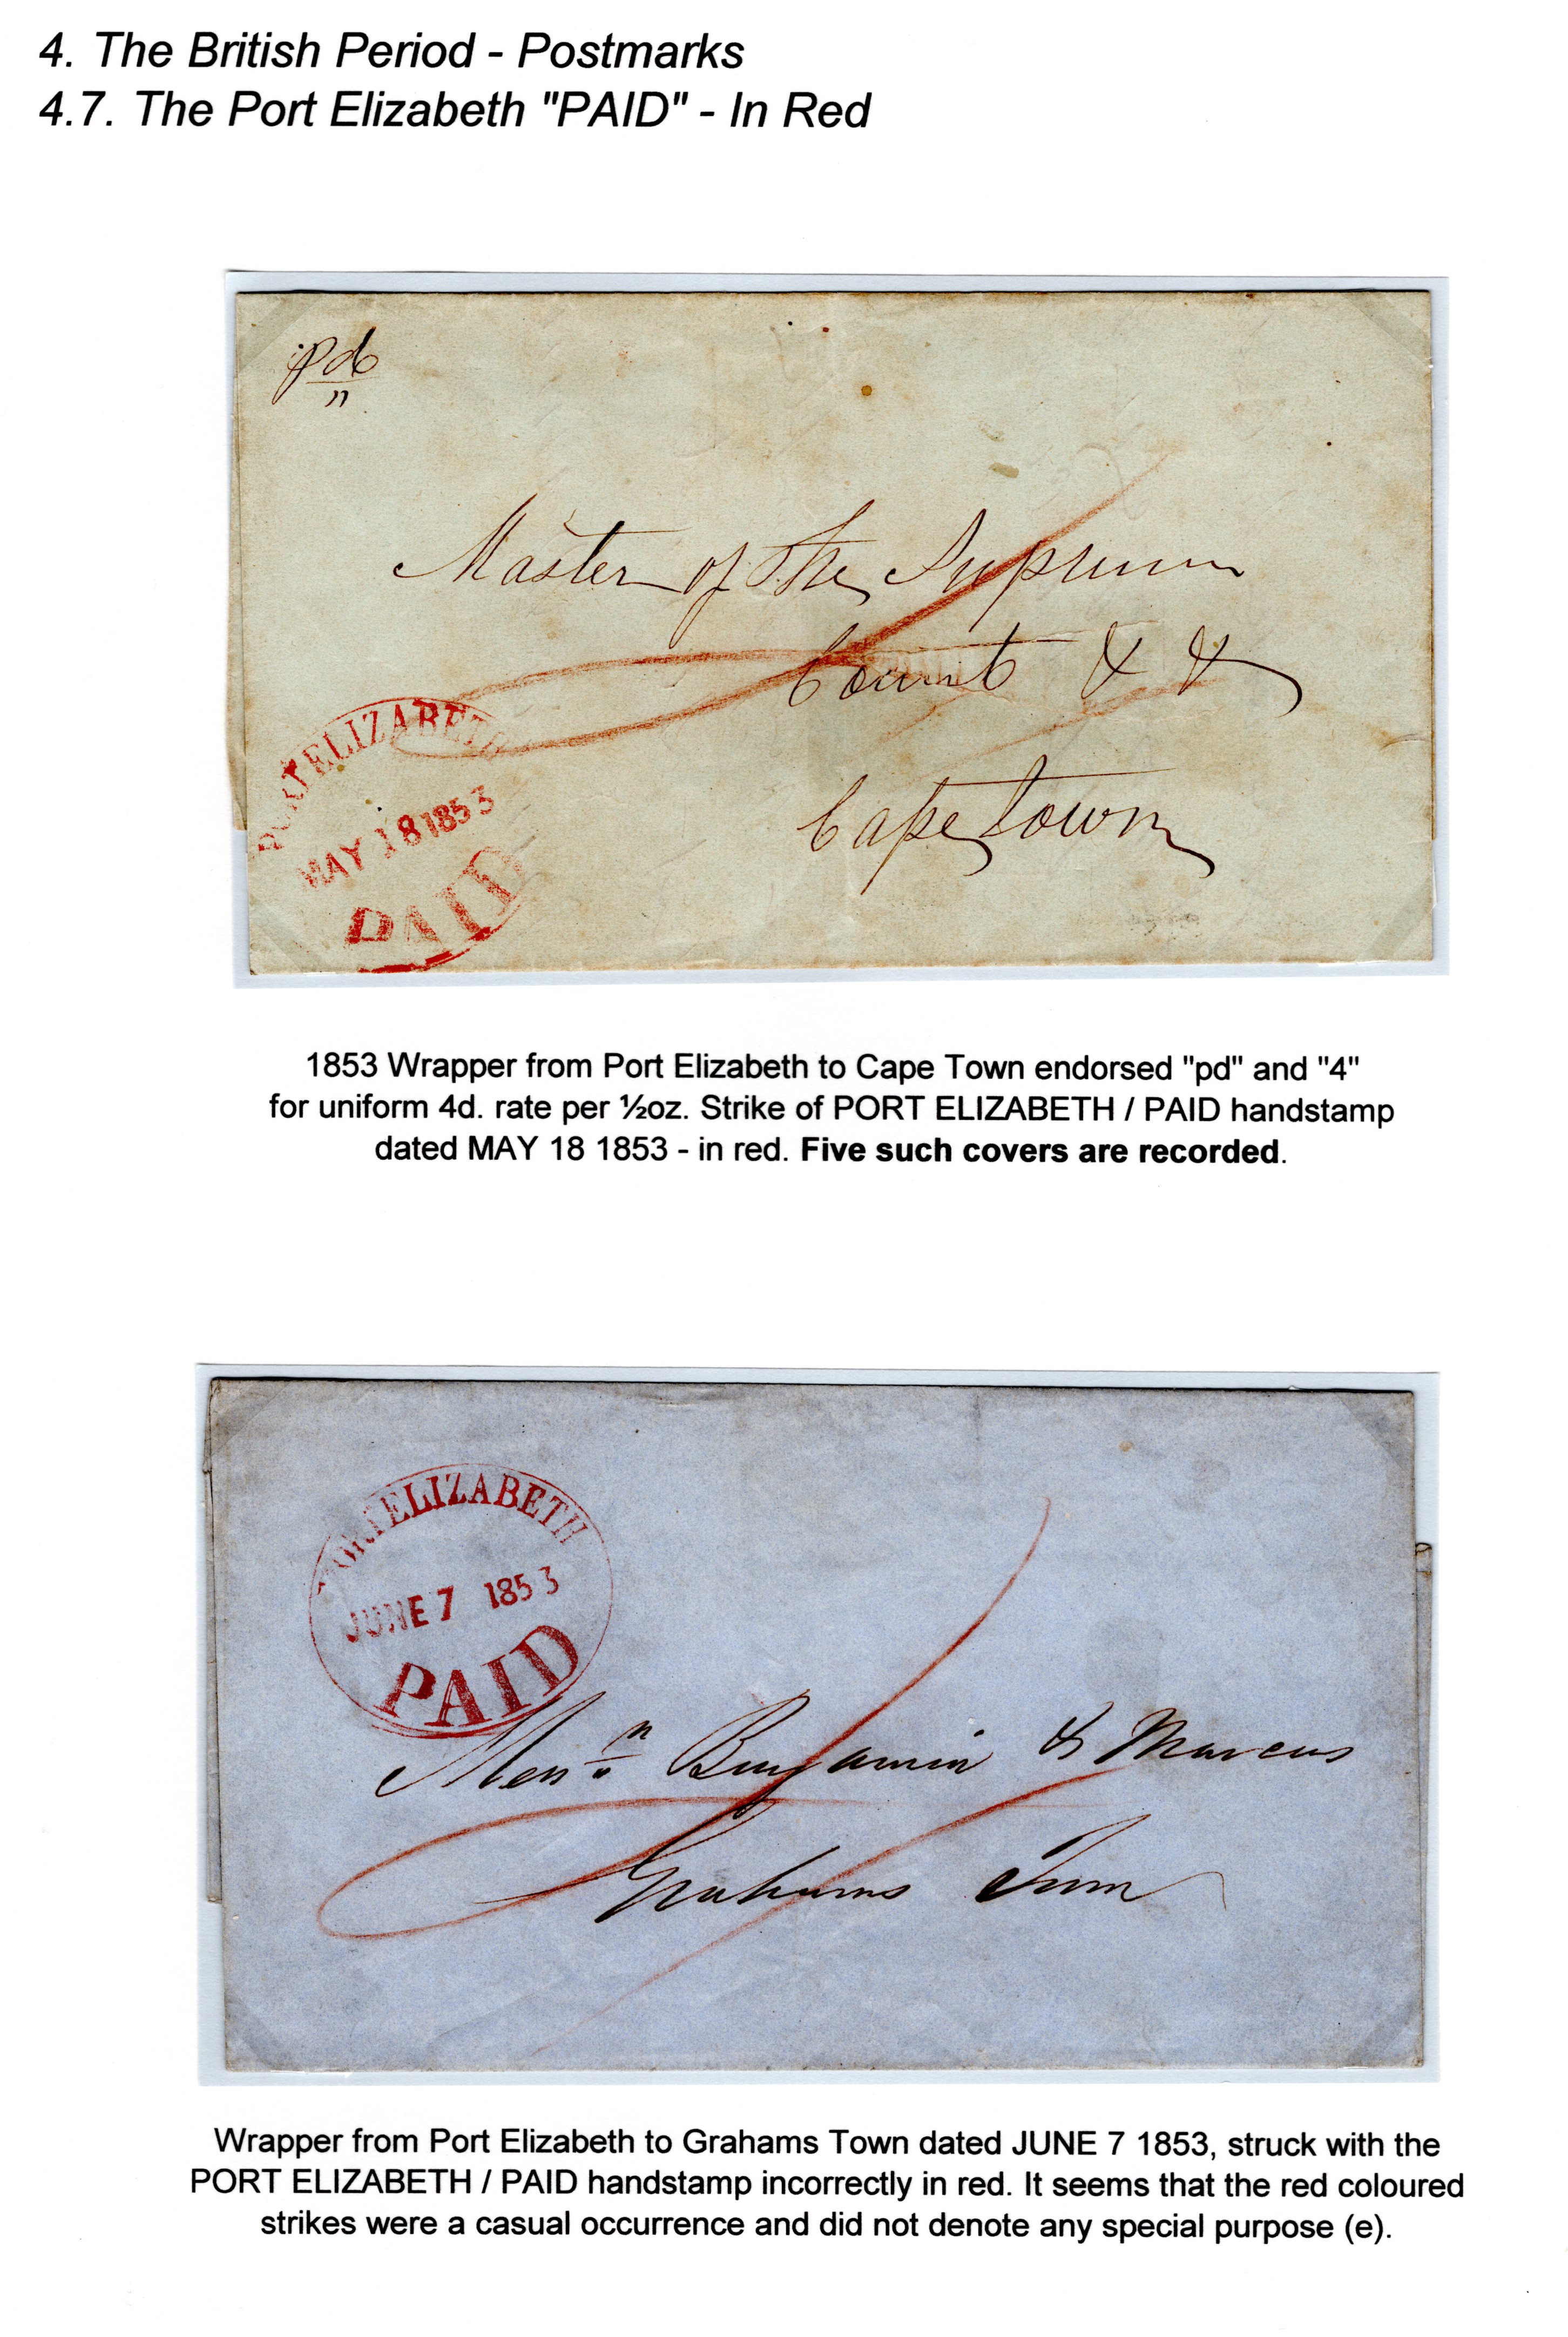 4. The British Period - Postmarks
4.7. The Port Elizabeth "PAID" - In Red
pd
Master of the Supreme
Court & &
Cape Town
PORT ELIZABETH
MAY 18 1853
PAID
1853 Wrapper from Port Elizabeth to Cape Town endorsed "pd" and "4"
for uniform 4d. rate per ½oz. Strike of PORT ELIZABETH / PAID handstamp
dated MAY 18 1853 - in red. Five such covers are recorded.
PORT ELIZABETH
JUNE 7 1853
PAID
Messrs Benjamin & Marcus
Grahams Town
Wrapper from Port Elizabeth to Grahams Town dated JUNE 7 1853, struck with the
PORT ELIZABETH / PAID handstamp incorrectly in red. It seems that the red coloured
strikes were a casual occurrence and did not denote any special purpose (e).